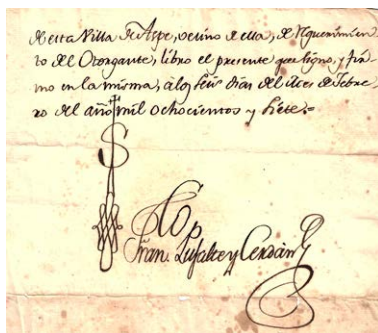 de esta Villa de Aspe, vecino de ella, de Requerimien
to del Otorgante, libro el presente que signo, y fir-
mo en la misma, a los seis dias del Mes de Febre
ro del año mil ochocientos y siete.=
Fran. y Cerdán